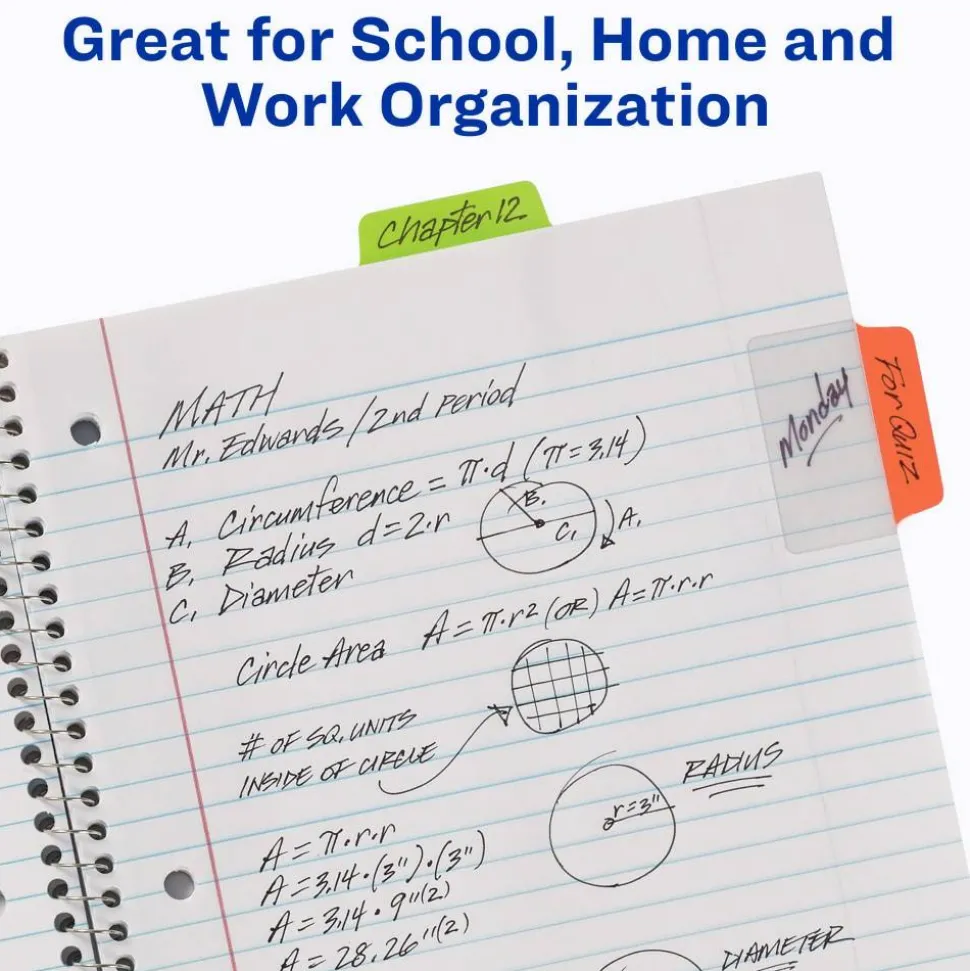 Great for School, Home and
Work Organization
Chapter 12
For Quiz
Monday
MATH
Mr. Edwards / 2nd Period
A. Circumference = π·d (π=3.14)
B. Radius d=2·r
C. Diameter
B.
C.
A.
Circle Area A=π·r² (OR) A=π·r·r
# OF SQ. UNITS
INSIDE OF CIRCLE
RADIUS
r=3"
A=π·r·r
A=3.14·(3")·(3")
A=3.14·9"(2)
A=28.26"(2)
DIAMETER